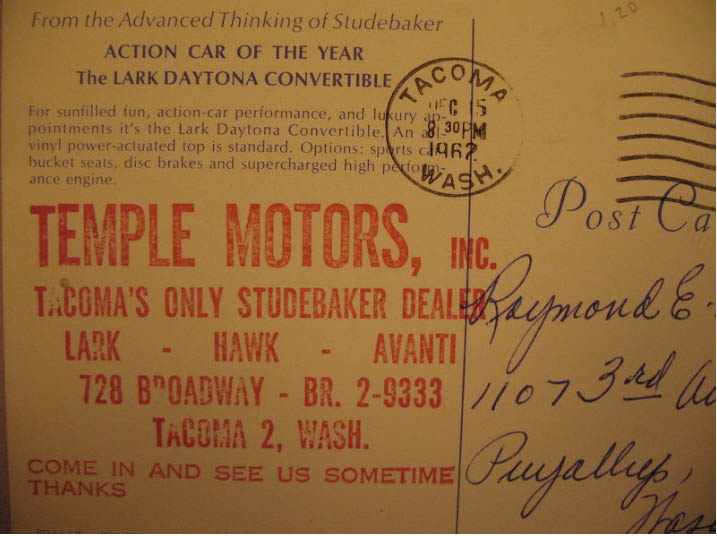 1.20
From the Advanced Thinking of Studebaker
ACTION CAR OF THE YEAR
The LARK DAYTONA CONVERTIBLE
For sunfilled fun, action-car performance, and luxury ap-
pointments it's the Lark Daytona Convertible. An all-
vinyl power-actuated top is standard. Options: sports car
bucket seats, disc brakes and supercharged high perform-
ance engine.
TACOMA
DEC 15
8 30 PM
1962
WASH.
TEMPLE MOTORS, INC.
TACOMA'S ONLY STUDEBAKER DEALER
LARK - HAWK - AVANTI
728 BROADWAY - BR. 2-9333
TACOMA 2, WASH.
COME IN AND SEE US SOMETIME
THANKS
Post Ca
Raymond E
1107 3rd
Puyallup,
Wash